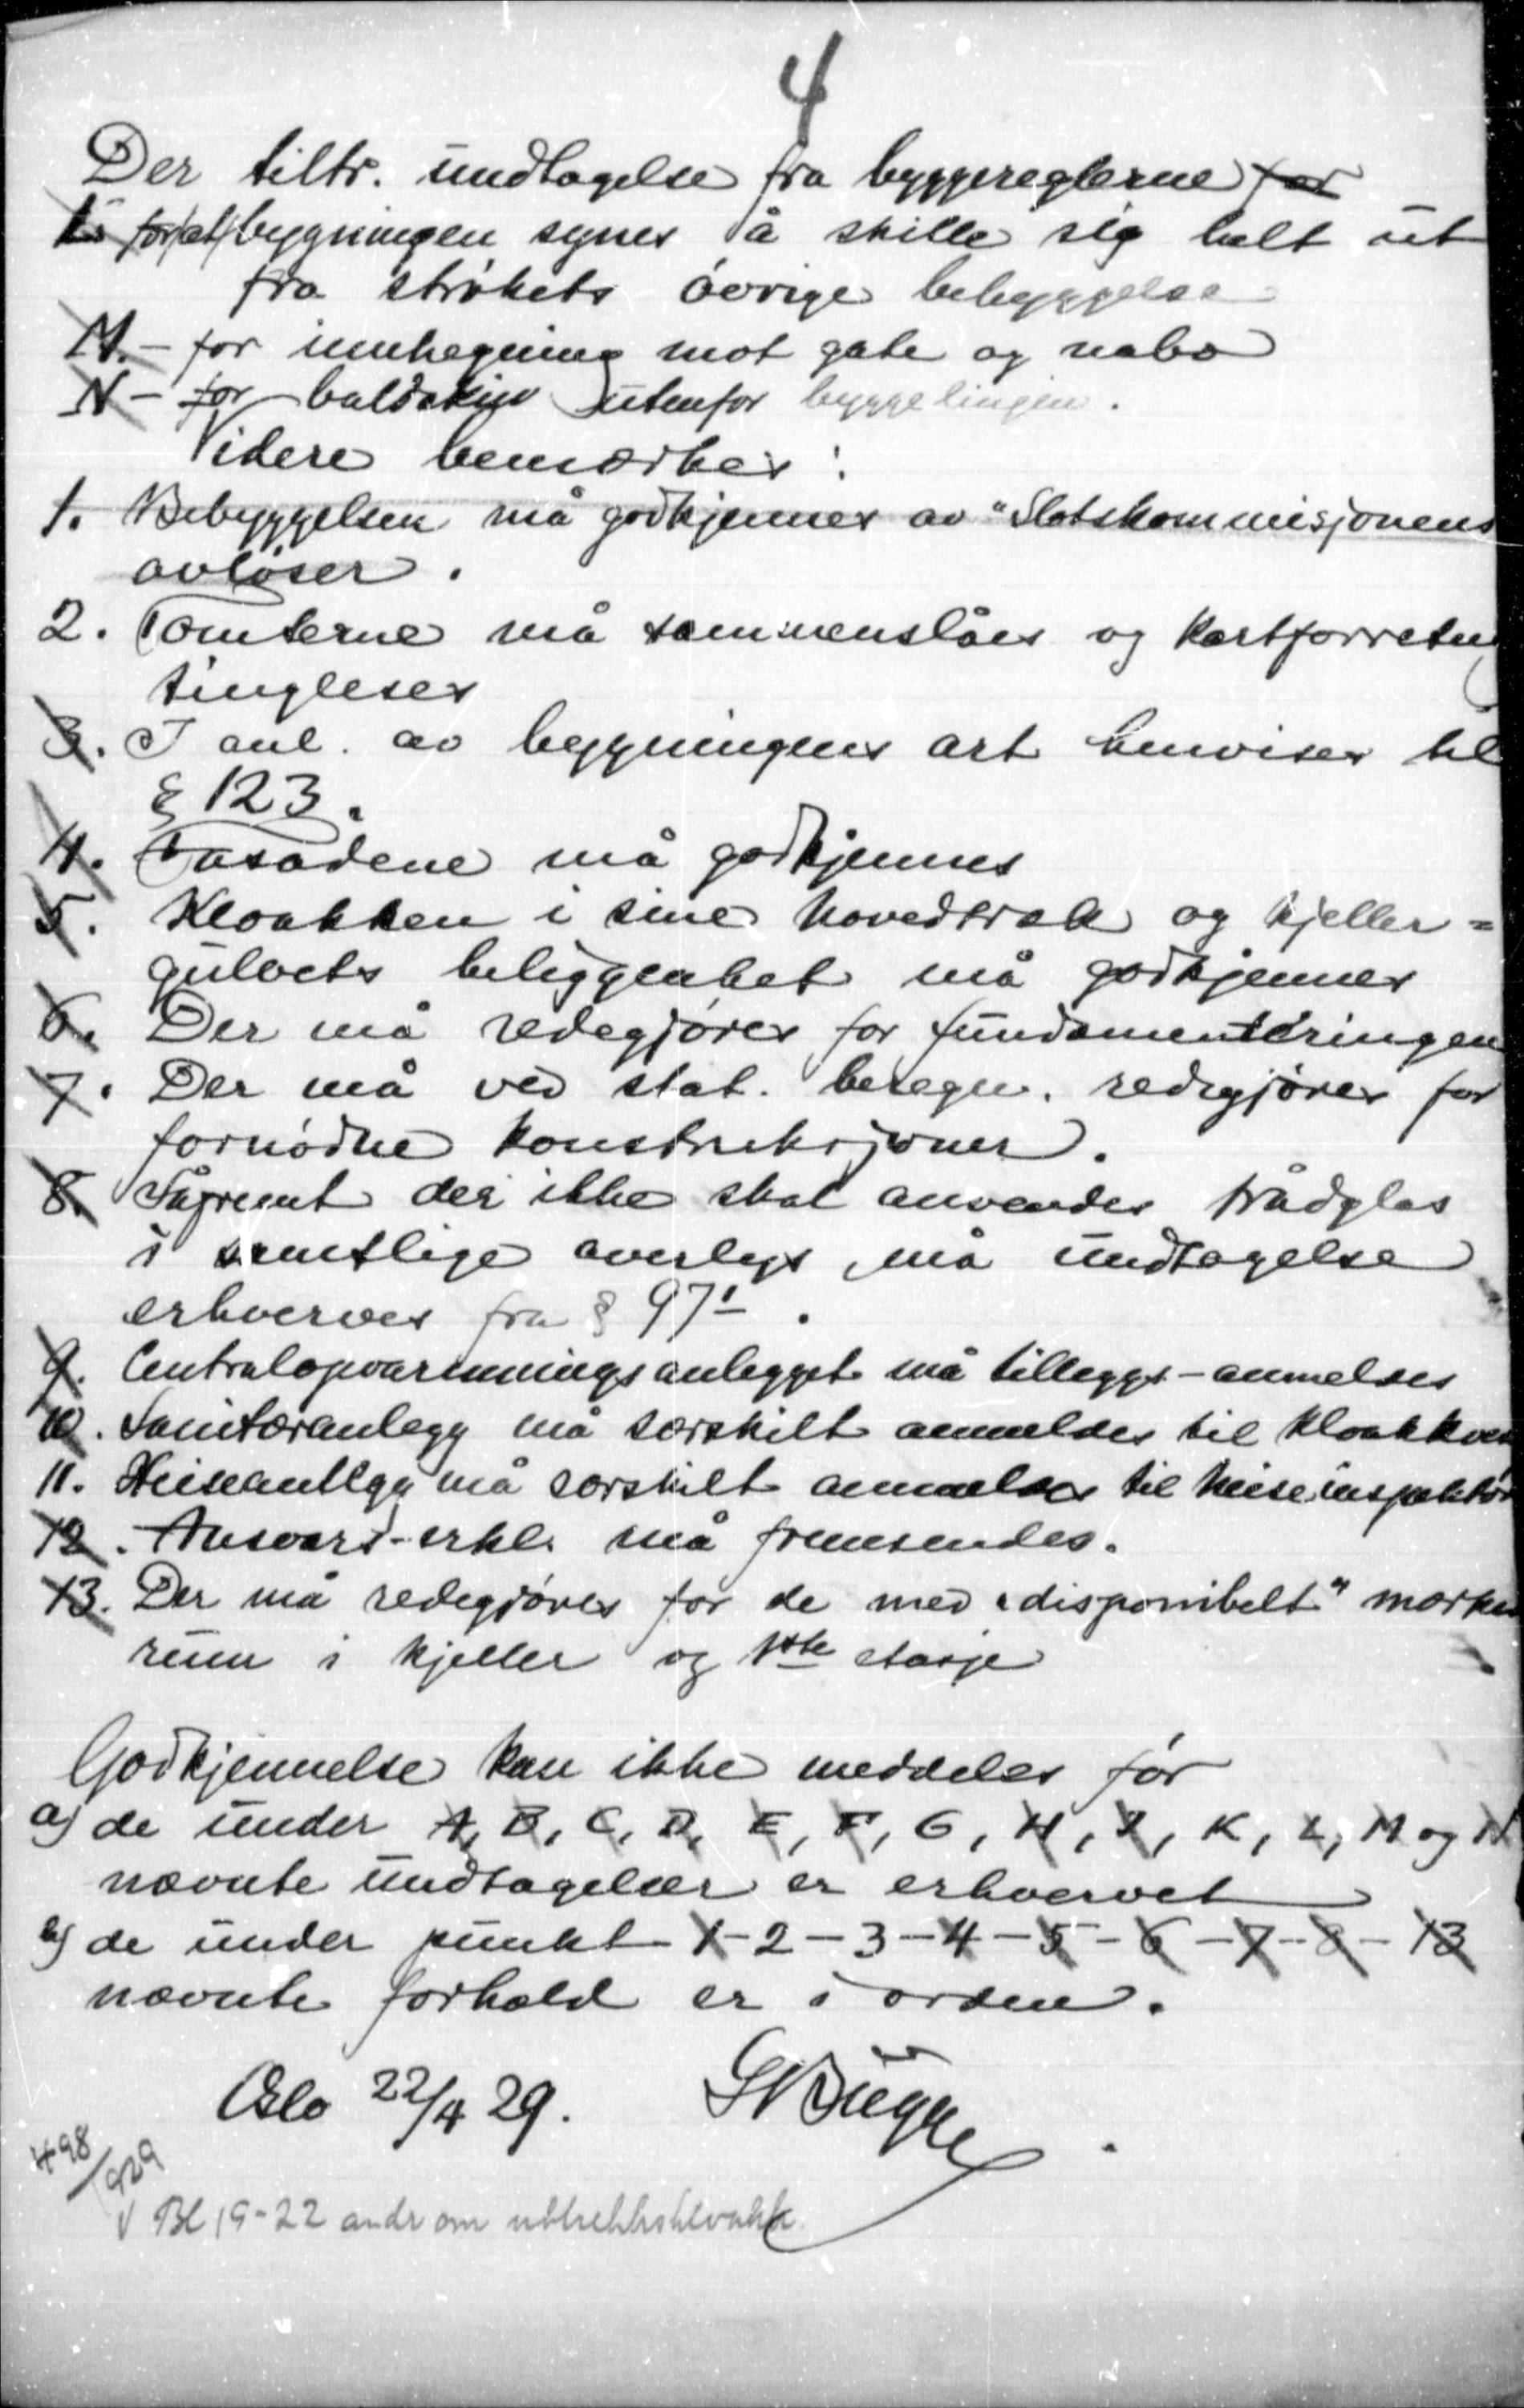 4
Der tiltr. undtagelse fra byggereglerne for
L. for at bygningen synes å skille sig helt ut
fra strökets övrige bebyggelse
M. - for innhegning mot gate og nabo
N - for baldakin utenfor byggelinjen.
Videre bemerkes:
1. Bebyggelsen må godkjennes av "Slotskommisjonens
avlöser.
2. Tomterne må sammenslåes og kartforretn
tingleses
3. I anl. av bygningens art henvises til
§ 123.
4. Fasadene må godkjennes
5. Kloakken i sine hovedtræk og kjeller=
gulvets beliggenhet må godkjennes
6. Der må redegjöres for fundamenteringen
7. Der må ved stat. beregn. redegjöres for
fornödne konstruksjoner.
8. Såfremt der ikke skal anvendes trådglas
i samtlige overlys, må undtagelse
erhverves fra § 97¹.
9. Centralopvarmningsanlegget må tilleggs-anmeldes
10. Sanitæranlegg må særskilt anmeldes til kloakkves
11. Heiseanlegg må særskilt anmeldes til heiseinspektör
12. Ansvars-erkl. må fremsendes.
13. Der må redegjöres for de med "disponibelt" merke
rum i kjeller og 1ste etasje
Godkjennelse kan ikke meddeles för
a) de under A, B, C, D, E, F, G, H, I, K, L, M og N
nævnte undtagelser er erhvervet
b) de under punkt 1-2-3-4-5-6-7-8-13
nævnte forhold er i orden.
Oslo 22/4 29. Bugge
498/929
V Bl 19-22 andr om